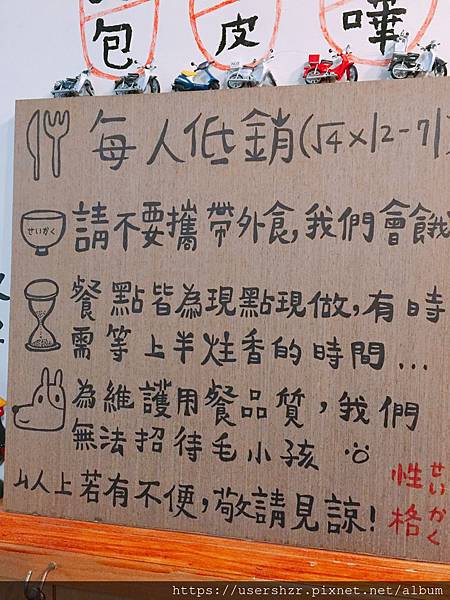 包 皮 嘩
每人低銷(√4×|2-7|)
せいかく
請不要攜帶外食,我們會餓
餐點皆為現點現做,有時
需等上半炷香的時間...
為維護用餐品質,我們
無法招待毛小孩
以上若有不便,敬請見諒!
性格
せいかく
https://usershzr.pixnet.net/album